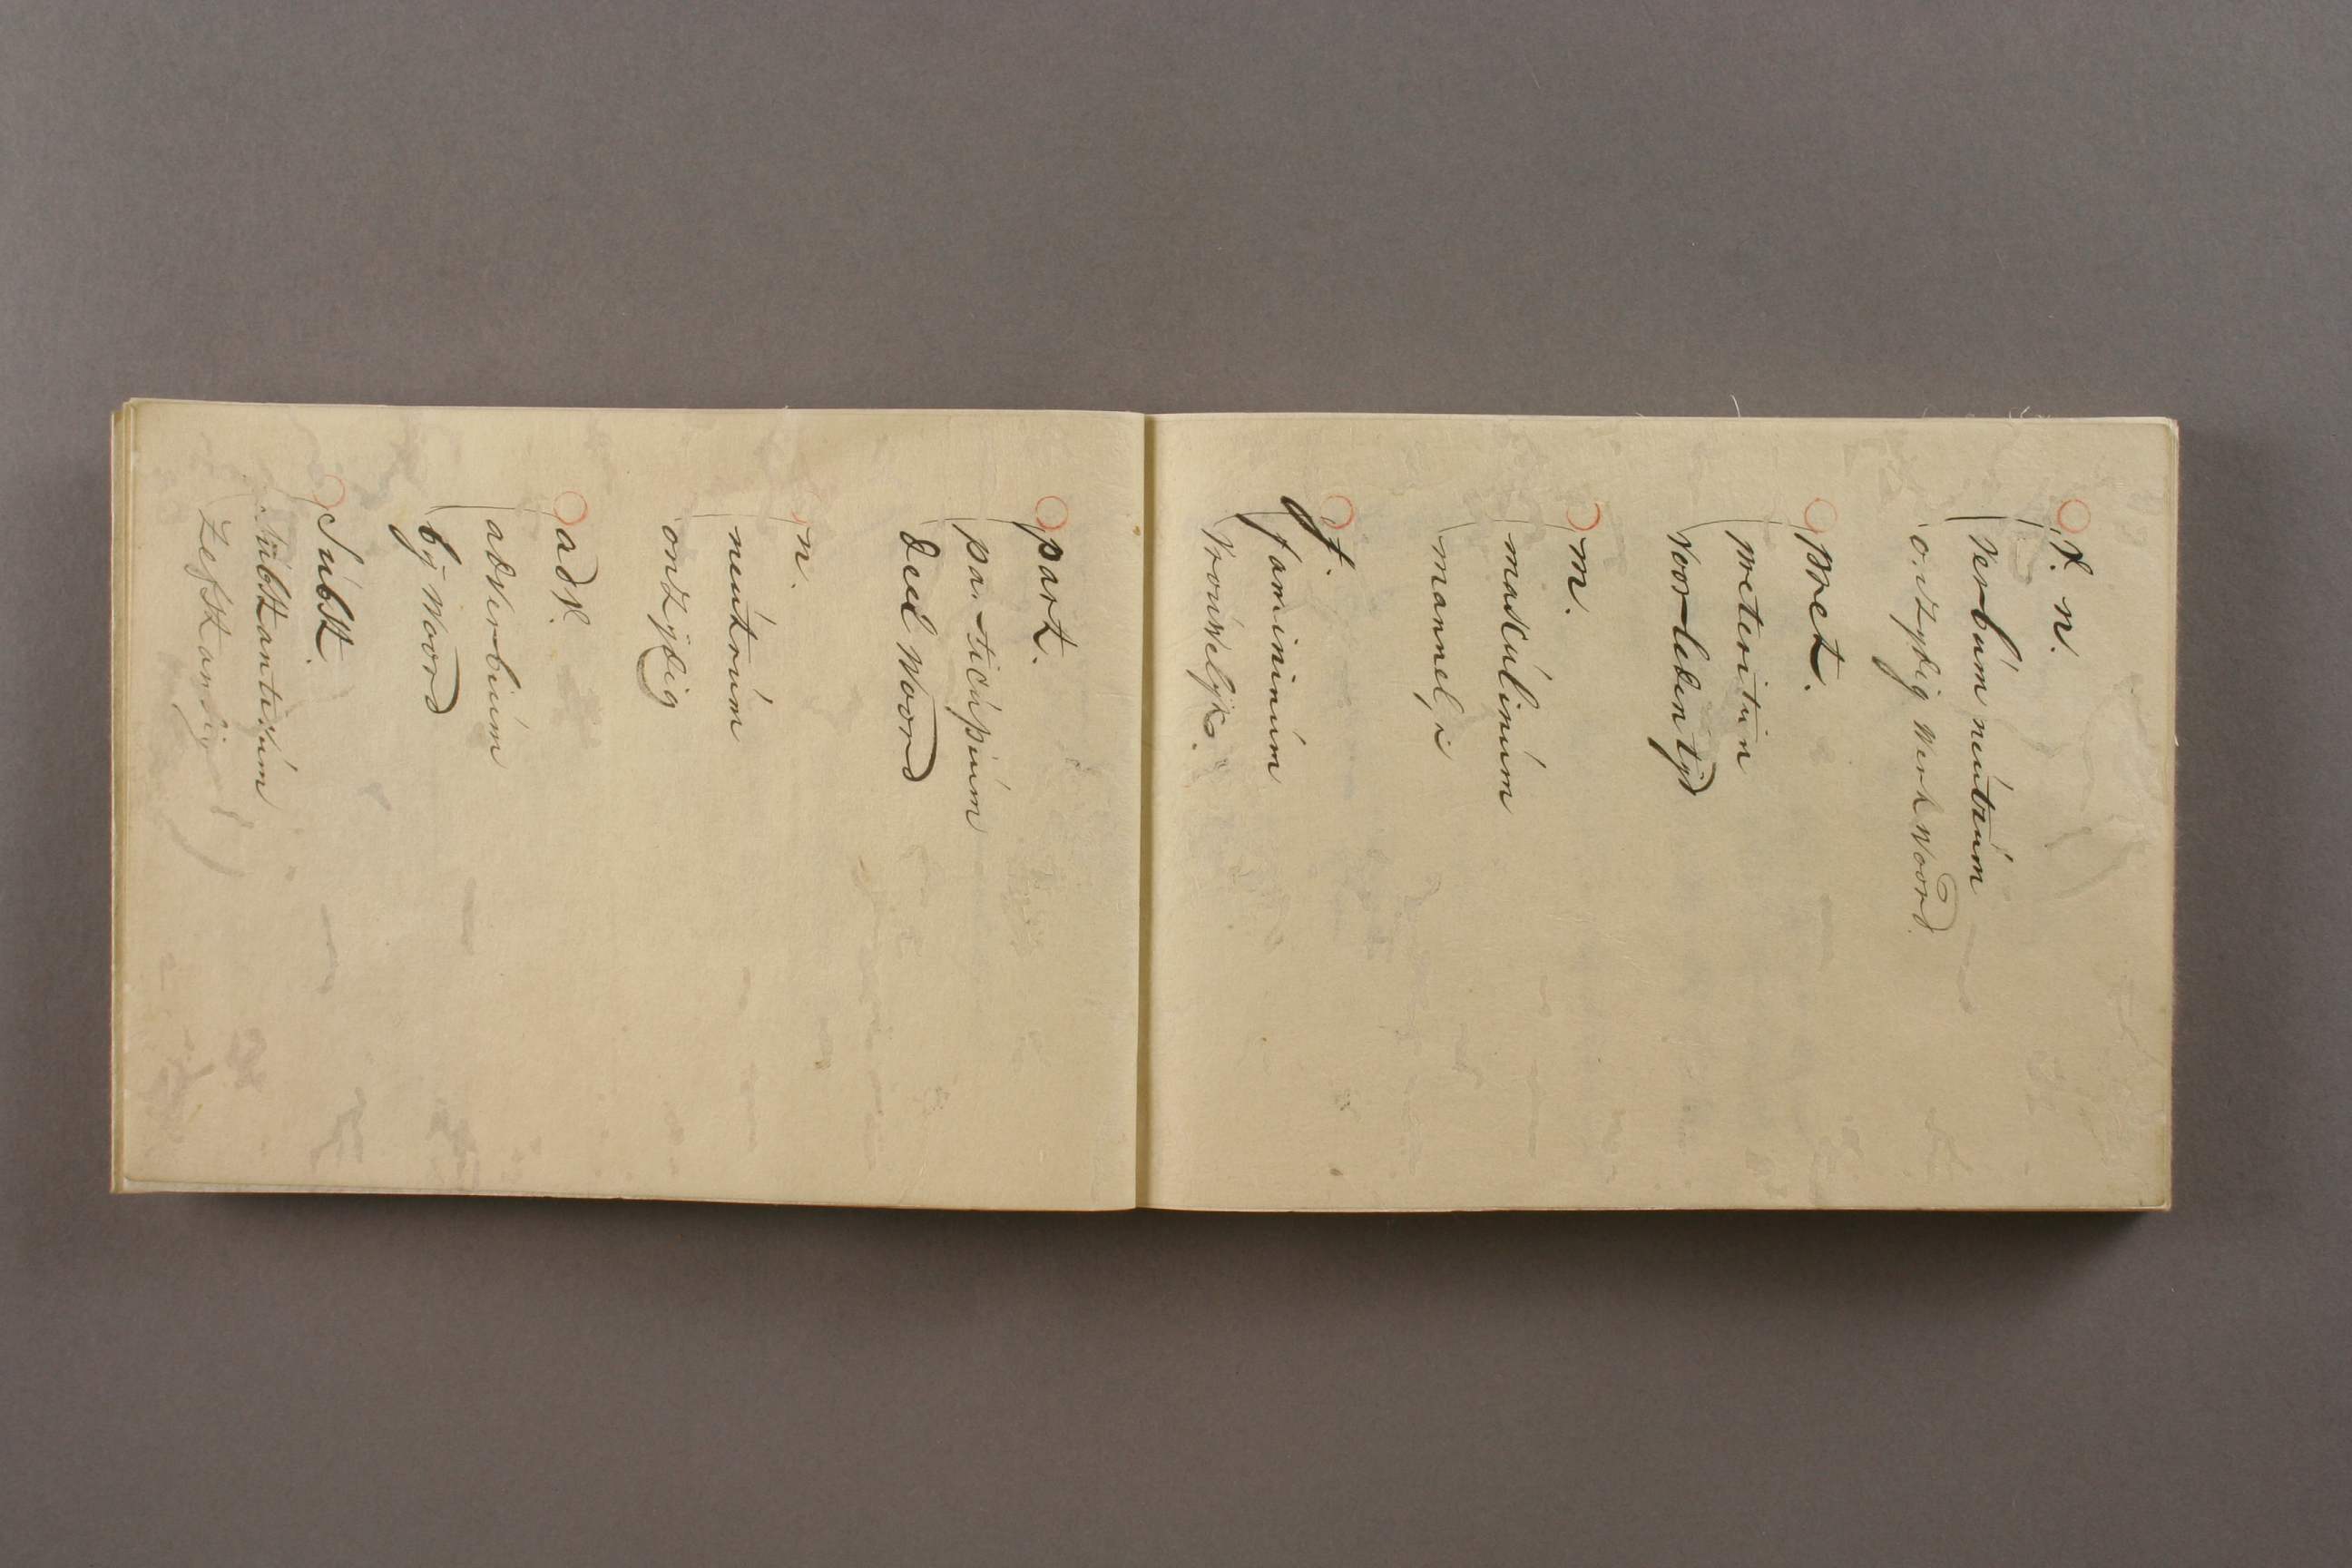 v. n.
verbúm neútrúm
ontydig werkwoord.
pret.
preteritum
voorleden tyd
m.
masculinúm
mannel,i
f.
famininúm
vroúwelyk.
part.
particúpiúm
deel woord
n.
neútrúm
ontzydig
adv.
adverbiúm
by woord
Súbst.
súbstantivúm
zefstandig